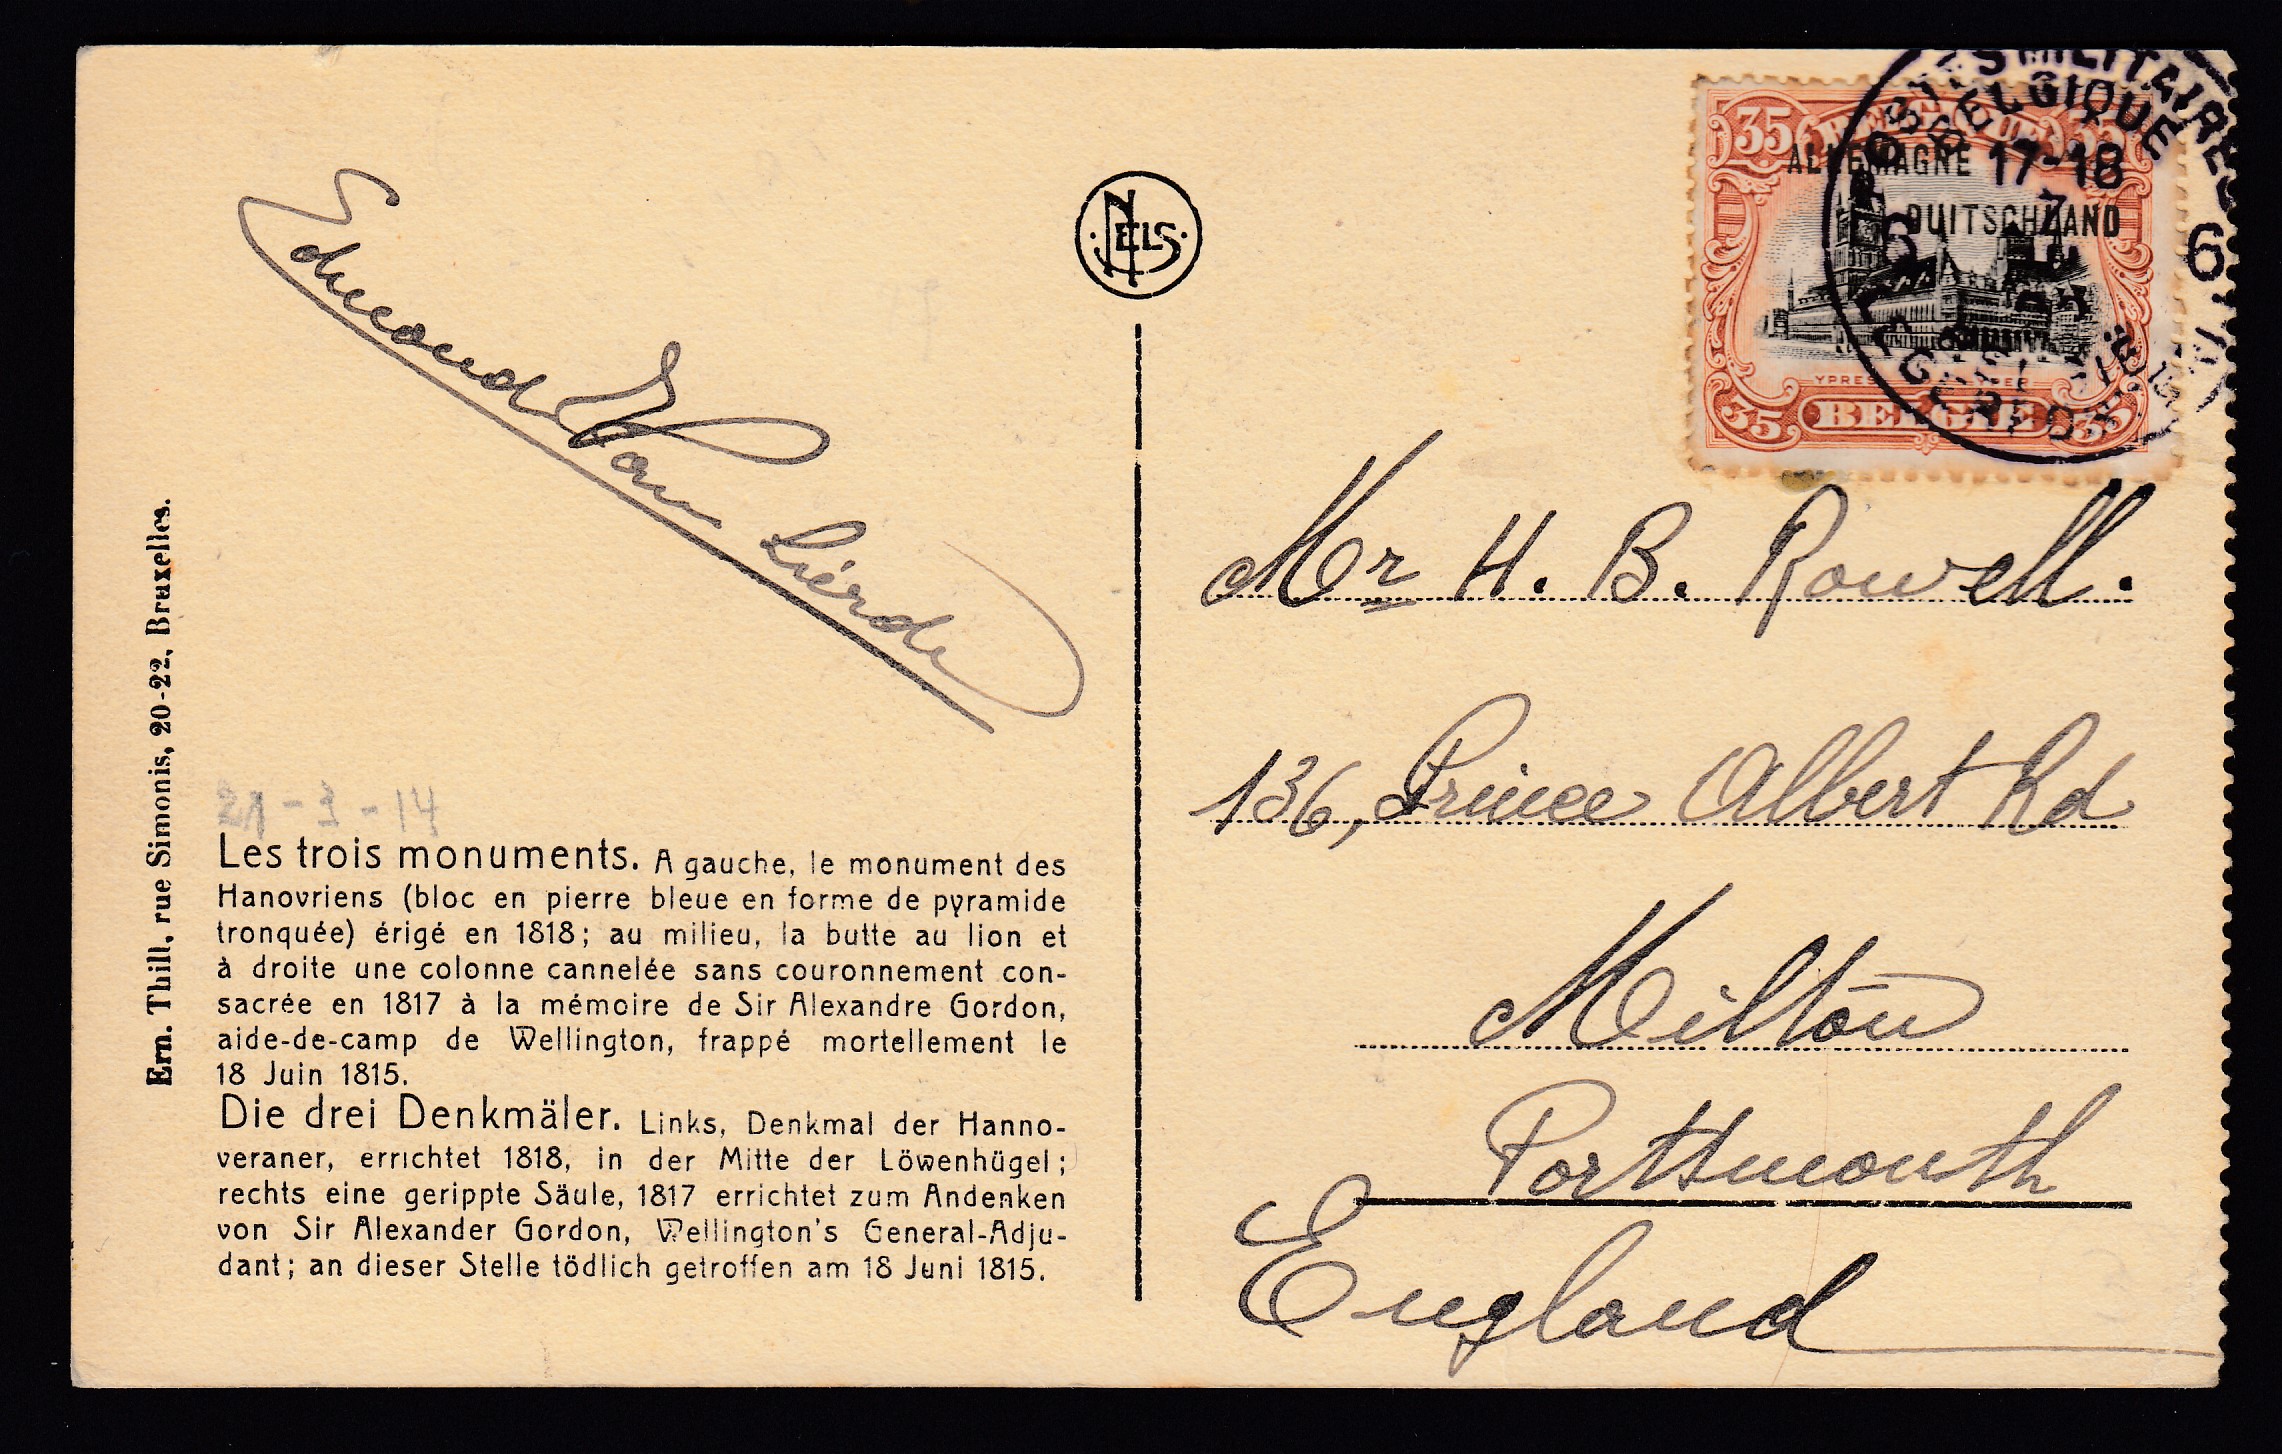 Edmond Van Lierde
NELS
Ern. Thill, rue Simonis, 20-22, Bruxelles.
21-3-14
Les trois monuments. A gauche, le monument des
Hanovriens (bloc en pierre bleue en forme de pyramide
tronquée) érigé en 1818; au milieu, la butte au lion et
à droite une colonne cannelée sans couronnement con-
sacrée en 1817 à la mémoire de Sir Alexandre Gordon,
aide-de-camp de Wellington, frappé mortellement le
18 Juin 1815.
Die drei Denkmäler. Links, Denkmal der Hanno-
veraner, errichtet 1818, in der Mitte der Löwenhügel;
rechts eine gerippte Säule, 1817 errichtet zum Andenken
von Sir Alexander Gordon, Wellington's General-Adju-
dant; an dieser Stelle tödlich getroffen am 18 Juni 1815.
POSTES MILITAIRES
BELGIQUE
17-18
6 6
35 BELGIQUE 35
ALLEMAGNE
DUITSCHLAND
YPRES
35 BELGIË 35
Mr H. B. Rowell.
136, Prince Albert Rd
Milton
Portsmouth
England